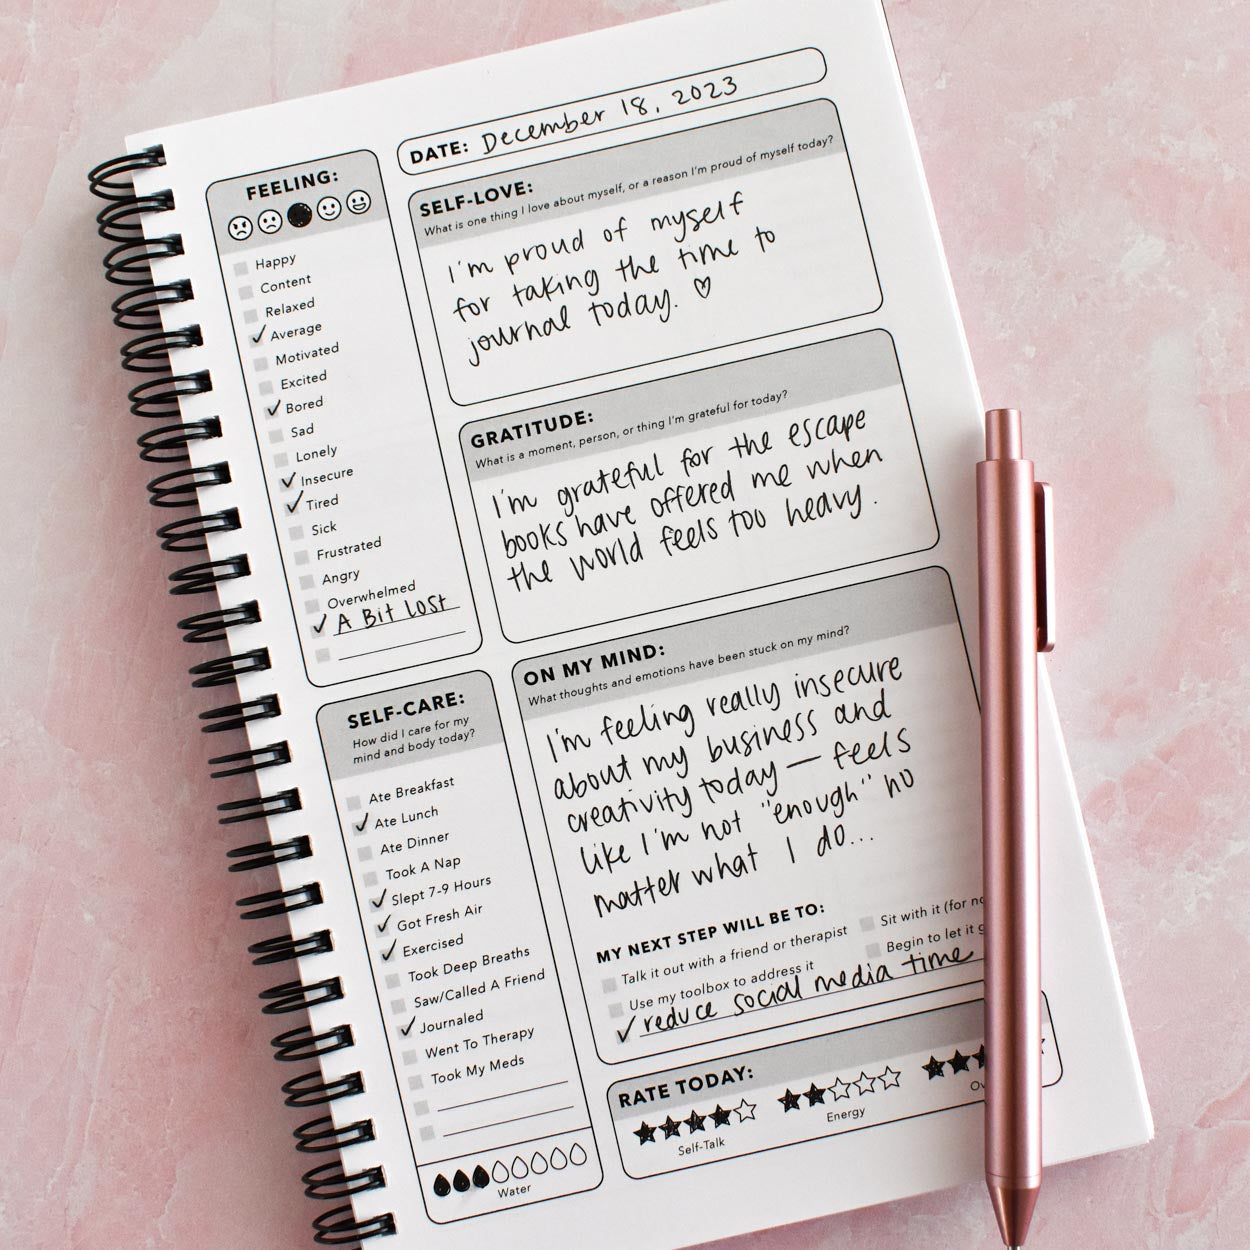 DATE: December 18, 2023
FEELING:
Happy
Content
Relaxed
Average
Motivated
Excited
Bored
Sad
Lonely
Insecure
Tired
Sick
Frustrated
Angry
Overwhelmed
A Bit Lost
SELF-CARE:
How did I care for my
mind and body today?
Ate Breakfast
Ate Lunch
Ate Dinner
Took A Nap
Slept 7-9 Hours
Got Fresh Air
Exercised
Took Deep Breaths
Saw/Called A Friend
Journaled
Went To Therapy
Took My Meds
Water
SELF-LOVE:
What is one thing I love about myself, or a reason I'm proud of myself today?
I'm proud of myself
for taking the time to
journal today. ♡
GRATITUDE:
What is a moment, person, or thing I'm grateful for today?
I'm grateful for the escape
books have offered me when
the world feels too heavy.
ON MY MIND:
What thoughts and emotions have been stuck on my mind?
I'm feeling really insecure
about my business and
creativity today — feels
like I'm not "enough" no
matter what I do...
MY NEXT STEP WILL BE TO:
Talk it out with a friend or therapist
Use my toolbox to address it
Sit with it (for
Begin to let it
reduce social media time
RATE TODAY:
Self-Talk
Energy